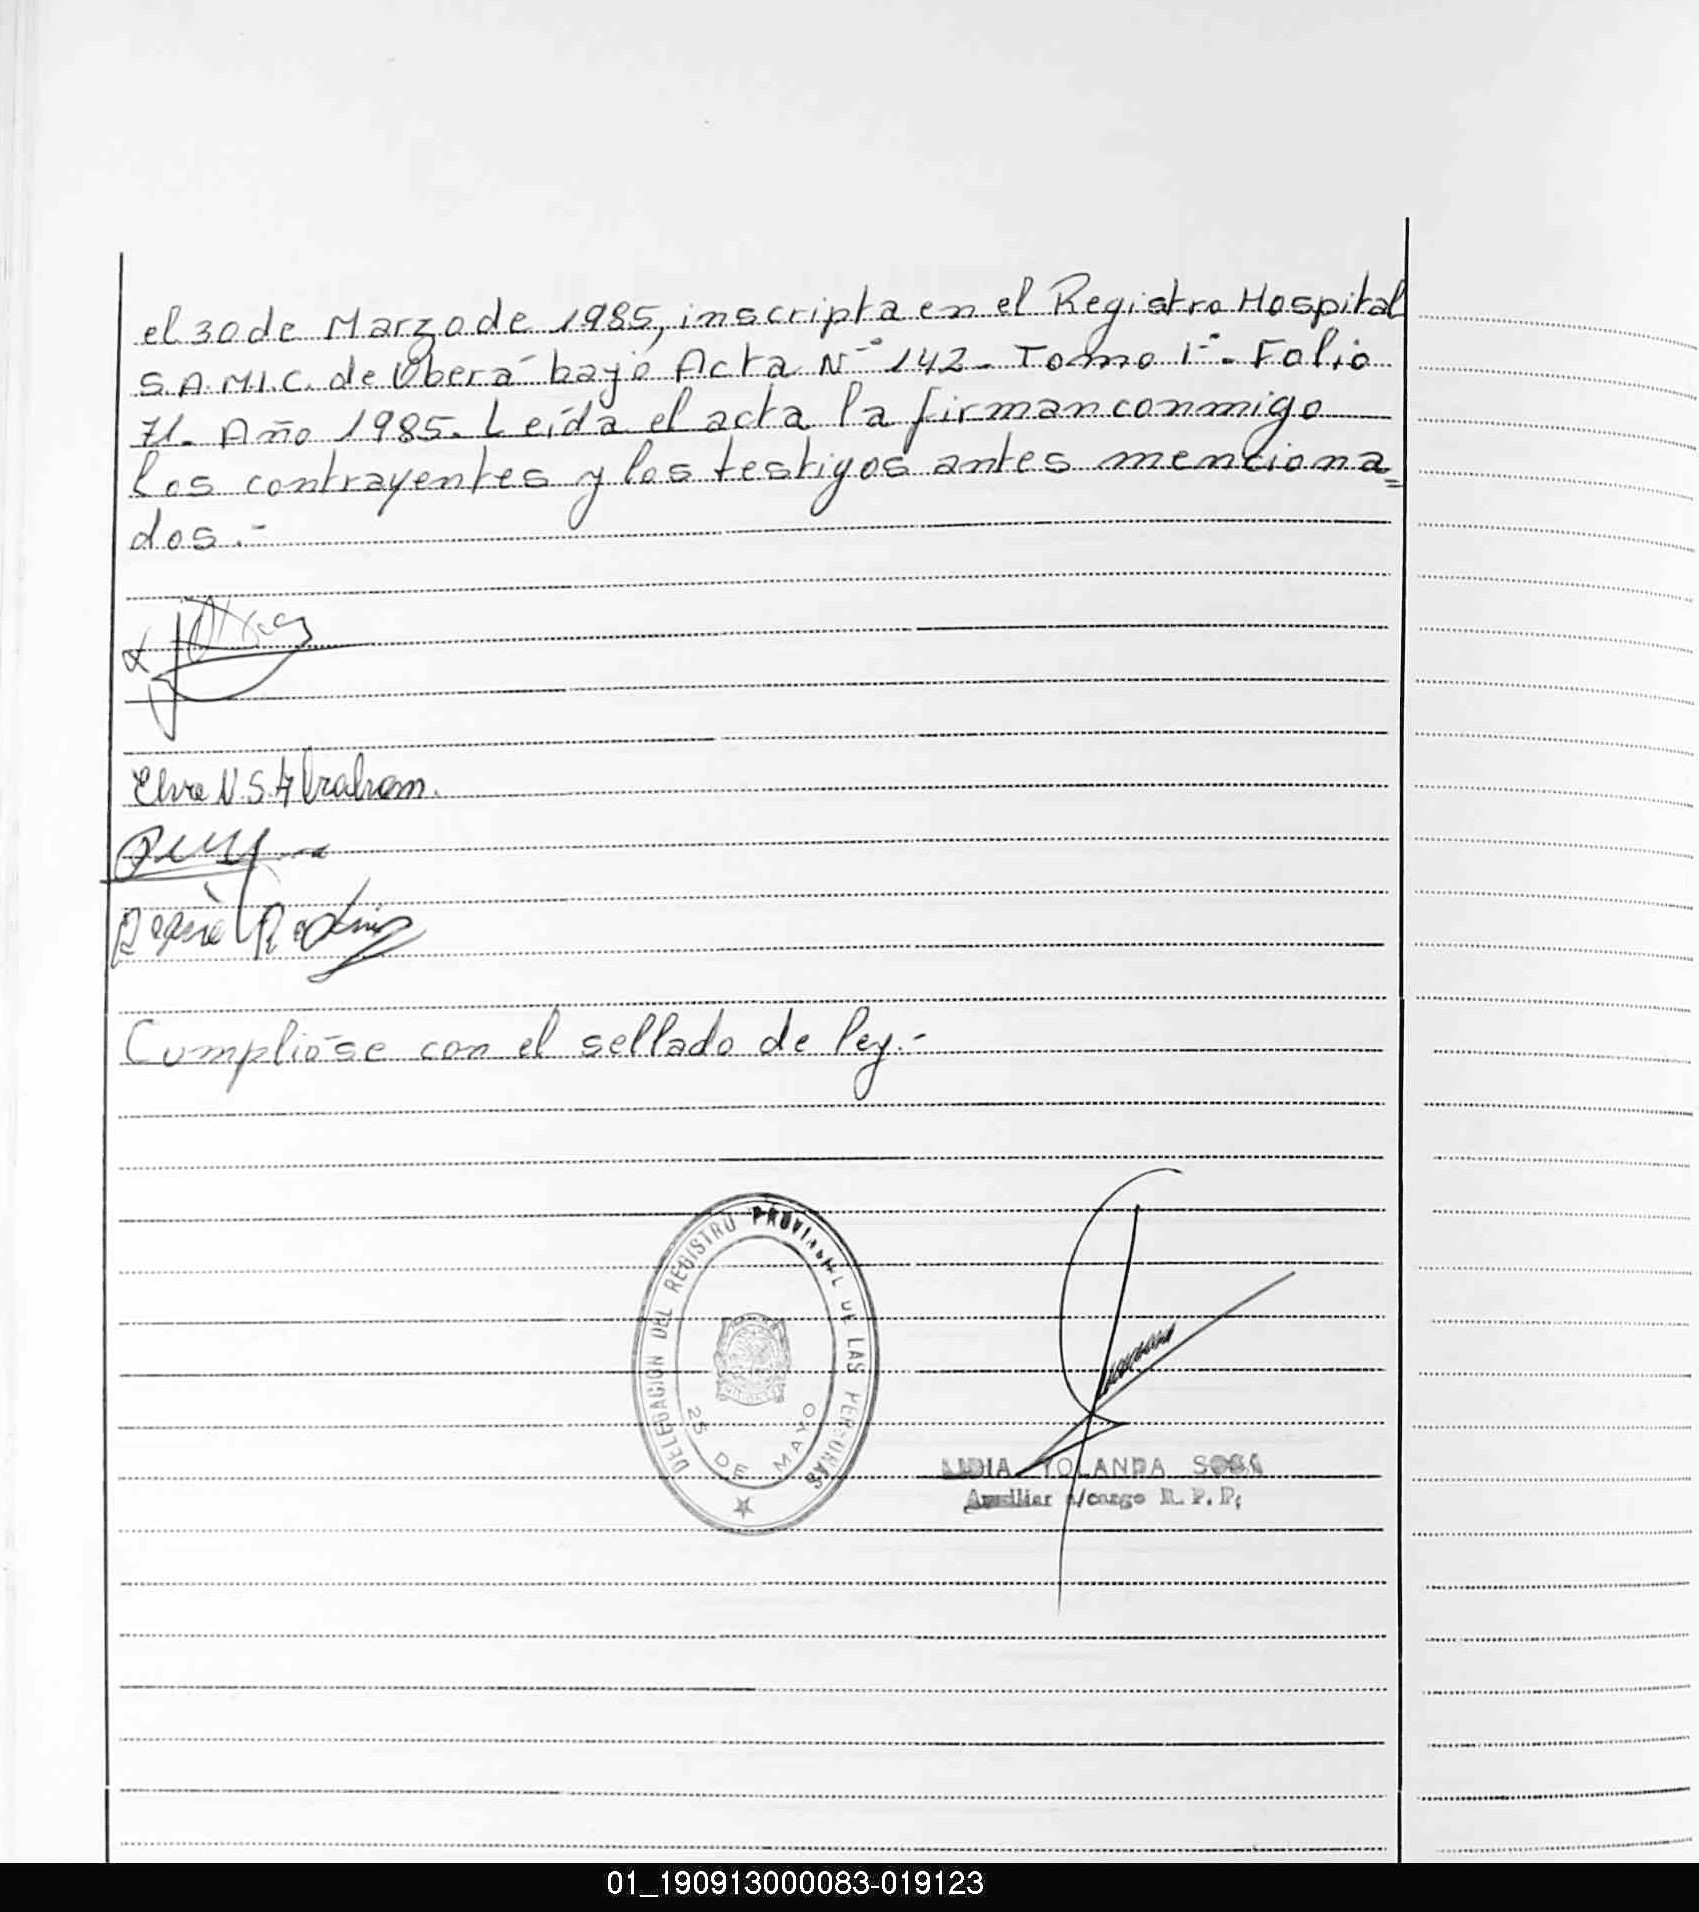 el 30 de Marzo de 1985, inscripta en el Registro Hospital
S.A.M.I.C. de Oberá bajo Acta Nº 142- Tomo 1º- Folio
71- Año 1985. Leída el acta la firman conmigo
los contrayentes y los testigos antes menciona=
dos.-
Elva N. S. Abraham.
Cumplióse con el sellado de ley.-
DELEGACION DEL REGISTRO PROVINCIAL DE LAS PERSONAS
25 DE MAYO
LIDIA YOLANDA SOSA
Auxiliar a/cargo R. P. P.
01_190913000083-019123